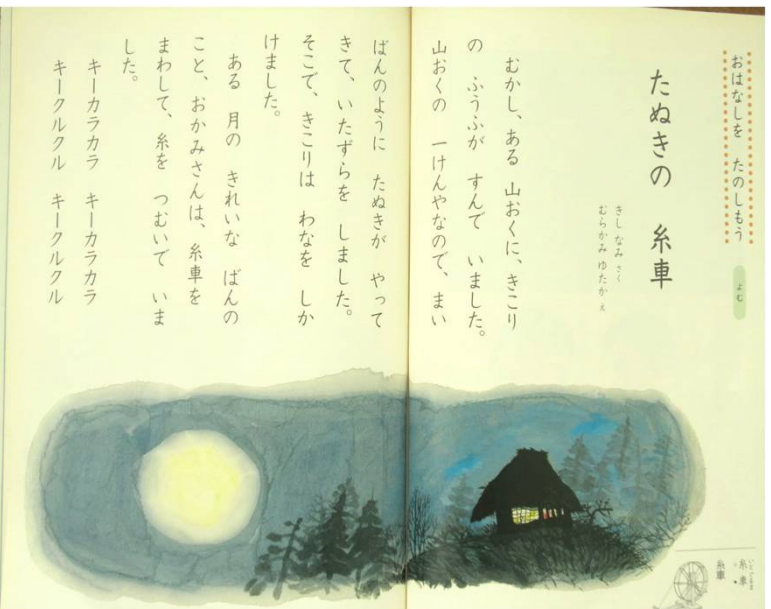 おはなしを　たのしもう
よむ
たぬきの　糸車
きし なみ さく
むらかみ ゆたか え
むかし、ある　山おくに、きこり
の　ふうふが　すんで　いました。
山おくの　一けんやなので、まい
ばんのように　たぬきが　やって
きて、いたずらを　しました。
そこで、きこりは　わなを　しか
けました。
ある　月の　きれいな　ばんの
こと、おかみさんは、糸車を
まわして、糸を　つむいで　いま
した。
キーカラカラ　キーカラカラ
キークルクル　キークルクル
いとぐるま
糸車
糸車